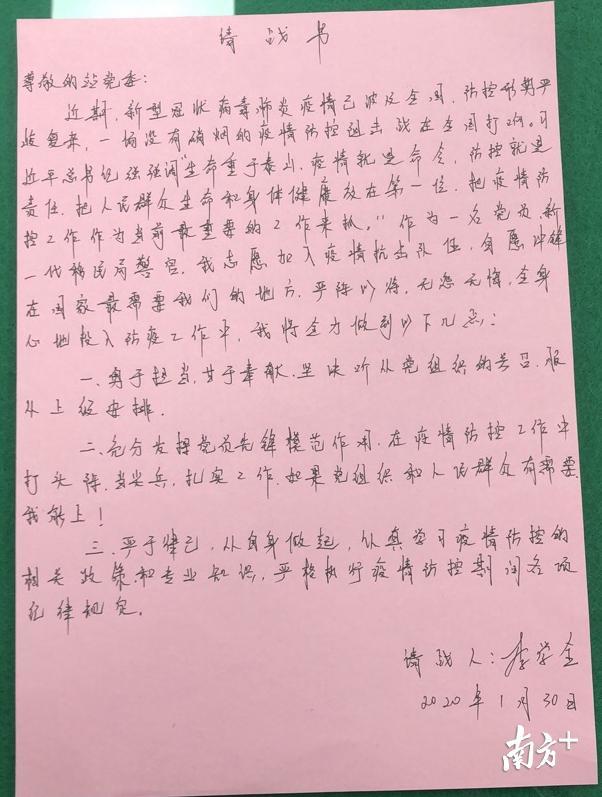 请战书
尊敬的站党委:
近期,新型冠状病毒肺炎疫情已波及全国,防控形势严
峻复杂,一场没有硝烟的疫情防控阻击战在全国打响。习
近平总书记强调“生命重于泰山,疫情就是命令,防控就是
责任,把人民群众生命和身体健康放在第一位,把疫情防
控工作作为当前最重要的工作来抓。”作为一名党员新
一代移民局警官,我志愿加入疫情抗击队伍,自愿冲锋
在国家最需要我们的地方,严阵以待,无怨无悔,全身
心地投入防疫工作中,我将全力做到以下几点:
一、勇于担当,甘于奉献,坚决听从党组织的号召,服
从上级安排.
二、充分发挥党员先锋模范作用,在疫情防控工作中
打头阵,当尖兵,扎实工作,如果党组织和人民群众有需要,
我能上!
三、严于律己,从自身做起,认真学习疫情防控的
相关政策和专业知识,严格执行疫情防控期间各项
纪律规定。
请战人:李学全
2020年1月30日
南方+